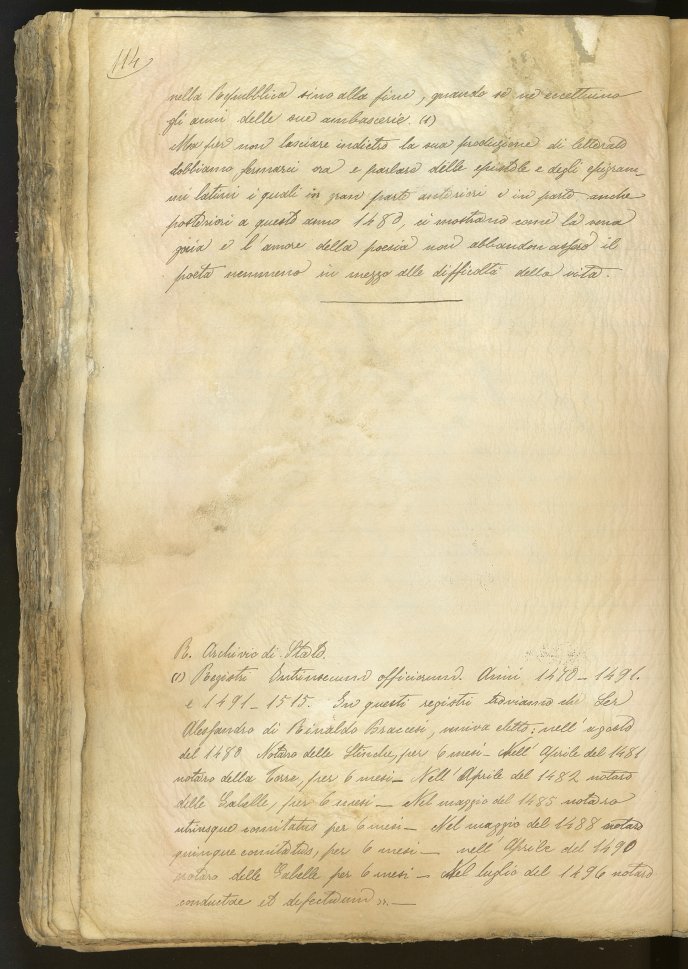 114
nella Repubblica sino alla fine, quando se ne eccettuino
gli anni delle sue ambascerie. (1)
Ma per non lasciare indietro la sua produzione di letterato
dobbiamo fermarci ora e parlare delle epistole e degli epigram-
mi latini i quali in gran parte anteriori e in parte anche
posteriori a questo anno 1480, ci mostrano come la vena
gaia e l'amore della poesia non abbandonassero il
poeta nemmeno in mezzo alle difficoltà della vita.
R. Archivio di Stato.
(1) Registri Intrinsecum officiorum. Anni 1470-1491.
e 1491-1515. In questi registri troviamo che Ser
Alessandro di Rinaldo Braccesi, veniva eletto: nell'agosto
del 1480 Notaro delle Stinche, per 6 mesi - Nell'Aprile del 1481
notaro della Torre, per 6 mesi - Nell'Aprile del 1482 notaro
delle Gabelle, per 6 mesi - Nel maggio del 1485 notaro
utriusque comitatus per 6 mesi - Nel maggio del 1488 notaro
quinque comitatus, per 6 mesi - nell'Aprile del 1490
notaro delle Gabelle per 6 mesi - Nel luglio del 1496 notaro
conductae et defectuum